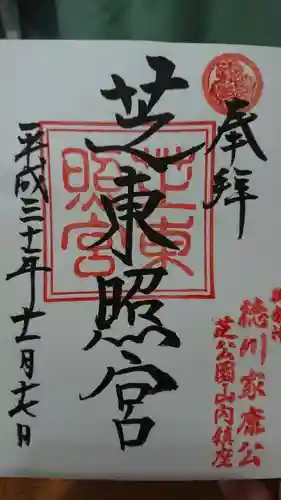 奉拝
芝東照宮
芝東照宮
平成三十年十一月十七日
徳川家康公
芝公園山内鎮座